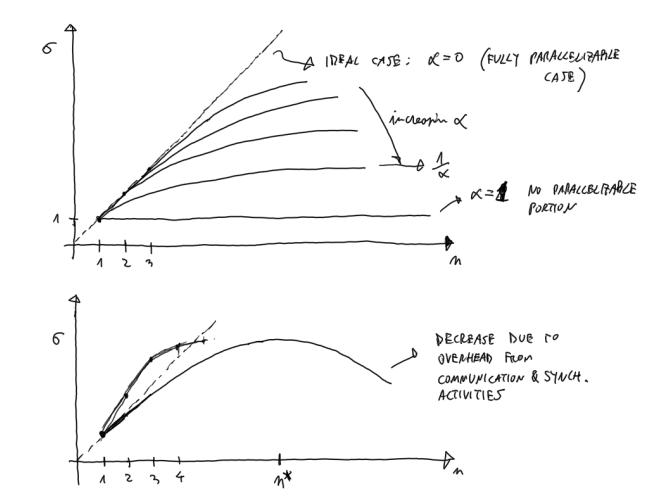 σ
IDEAL CASE: α=0 (FULLY PARALLELIZABLE
CASE)
increasing α
1/α
α=1 NO PARALLELIZABLE
PORTION
1
1 2 3
n
σ
DECREASE DUE TO
OVERHEAD FROM
COMMUNICATION & SYNCH.
ACTIVITIES
1 2 3 4
n*
n